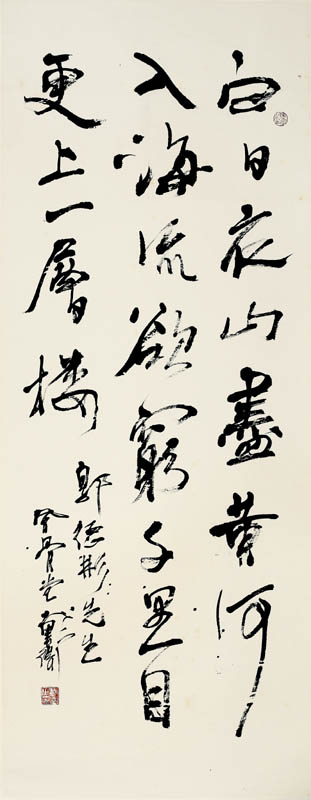 白日衣山盡黄河
入海流欲窮千里目
更上一層楼
郭德彬先生